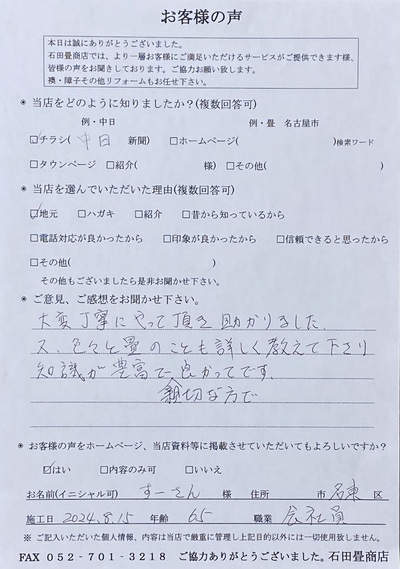 お客様の声
本日は誠にありがとうございました。
石田畳商店では、より一層お客様にご満足いただけるサービスがご提供できます様、
皆様の声をお聞きしております。ご協力お願い致します。
襖・障子その他リフォームもお任せ下さい。
※ 当店をどのように知りましたか？(複数回答可)
例・中日 例・畳 名古屋市
☑チラシ( 中日 新聞) □ホームページ( )検索ワード
□タウンページ □紹介( 様) □その他( )
※ 当店を選んでいただいた理由(複数回答可)
☑地元 □ハガキ □紹介 □昔から知っているから
□電話対応が良かったから □印象が良かったから □信頼できると思ったから
□その他( )
その他もございましたら是非お聞かせ下さい。
※ ご意見、ご感想をお聞かせ下さい。
大変丁寧にやって頂き助かりました。
又、色々と畳のことも詳しく教えて下さり
知識が豊富で良かってです。
親切な方で
※ お客様の声をホームページ、当店資料等に掲載させていただいてもよろしいですか？
☑はい □内容のみ可 □いいえ
お名前(イニシャル可) すーさん 様 住所 市 名東 区
施工日 2024.8.15 年齢 65 職業 会社員
※ ご記入いただいた個人情報、内容は当店で厳重に管理し上記目的以外には一切使用致しません。
FAX 052-701-3218 ご協力ありがとうございました。石田畳商店